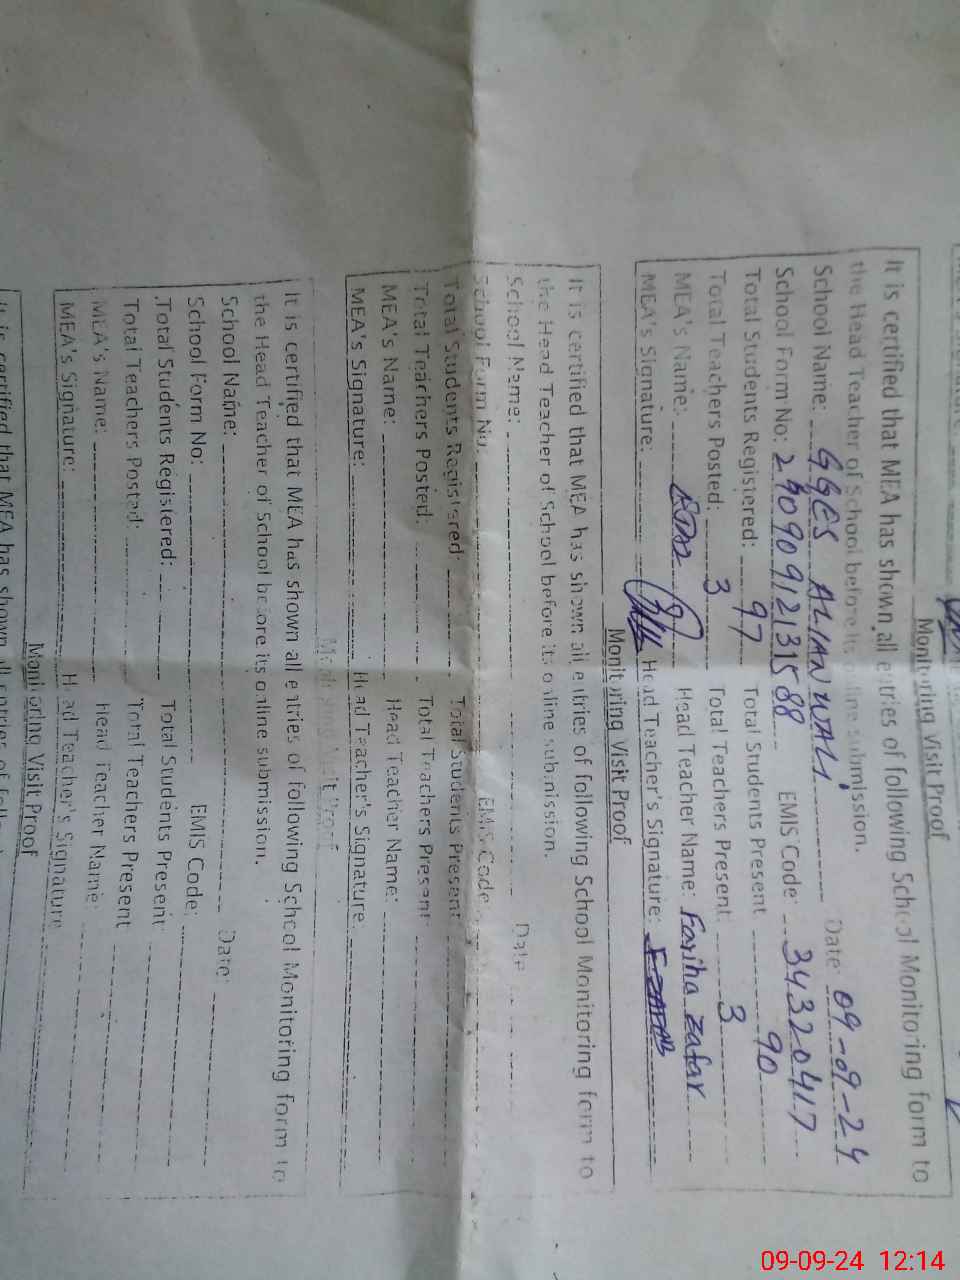 Monitoring Visit Proof
It is certified that MEA has shown all entries of following School Monitoring form to
the Head Teacher of School before its online submission.
School Name: GGES ALIANWALI Date: 09-09-24
School Form No: EMIS Code: 34320417
Total Students Registered: 97 Total Students Present 90
Total Teachers Posted: 3 Total Teachers Present: 3
MEA's Name: Head Teacher Name: Fariha Zafar
MEA's Signature: Head Teacher's Signature: F.ZAFAR
Monitoring Visit Proof
It is certified that MEA has shown all entries of following School Monitoring form to
the Head Teacher of School before its online submission.
School Name: Date
School Form No: EMIS Code
Total Students Registered: Total Students Present
Total Teachers Posted: Total Teachers Present
MEA's Name: Head Teacher Name:
MEA's Signature: Head Teacher's Signature
Monitoring Visit Proof
It is certified that MEA has shown all entries of following School Monitoring form to
the Head Teacher of School before its online submission.
School Name: Date:
School Form No: EMIS Code:
Total Students Registered: Total Students Present
Total Teachers Posted: Total Teachers Present
MEA's Name: Head Teacher Name:
MEA's Signature: Head Teacher's Signature
Monitoring Visit Proof
It is certified that MEA has shown all entries of
09-09-24 12:14